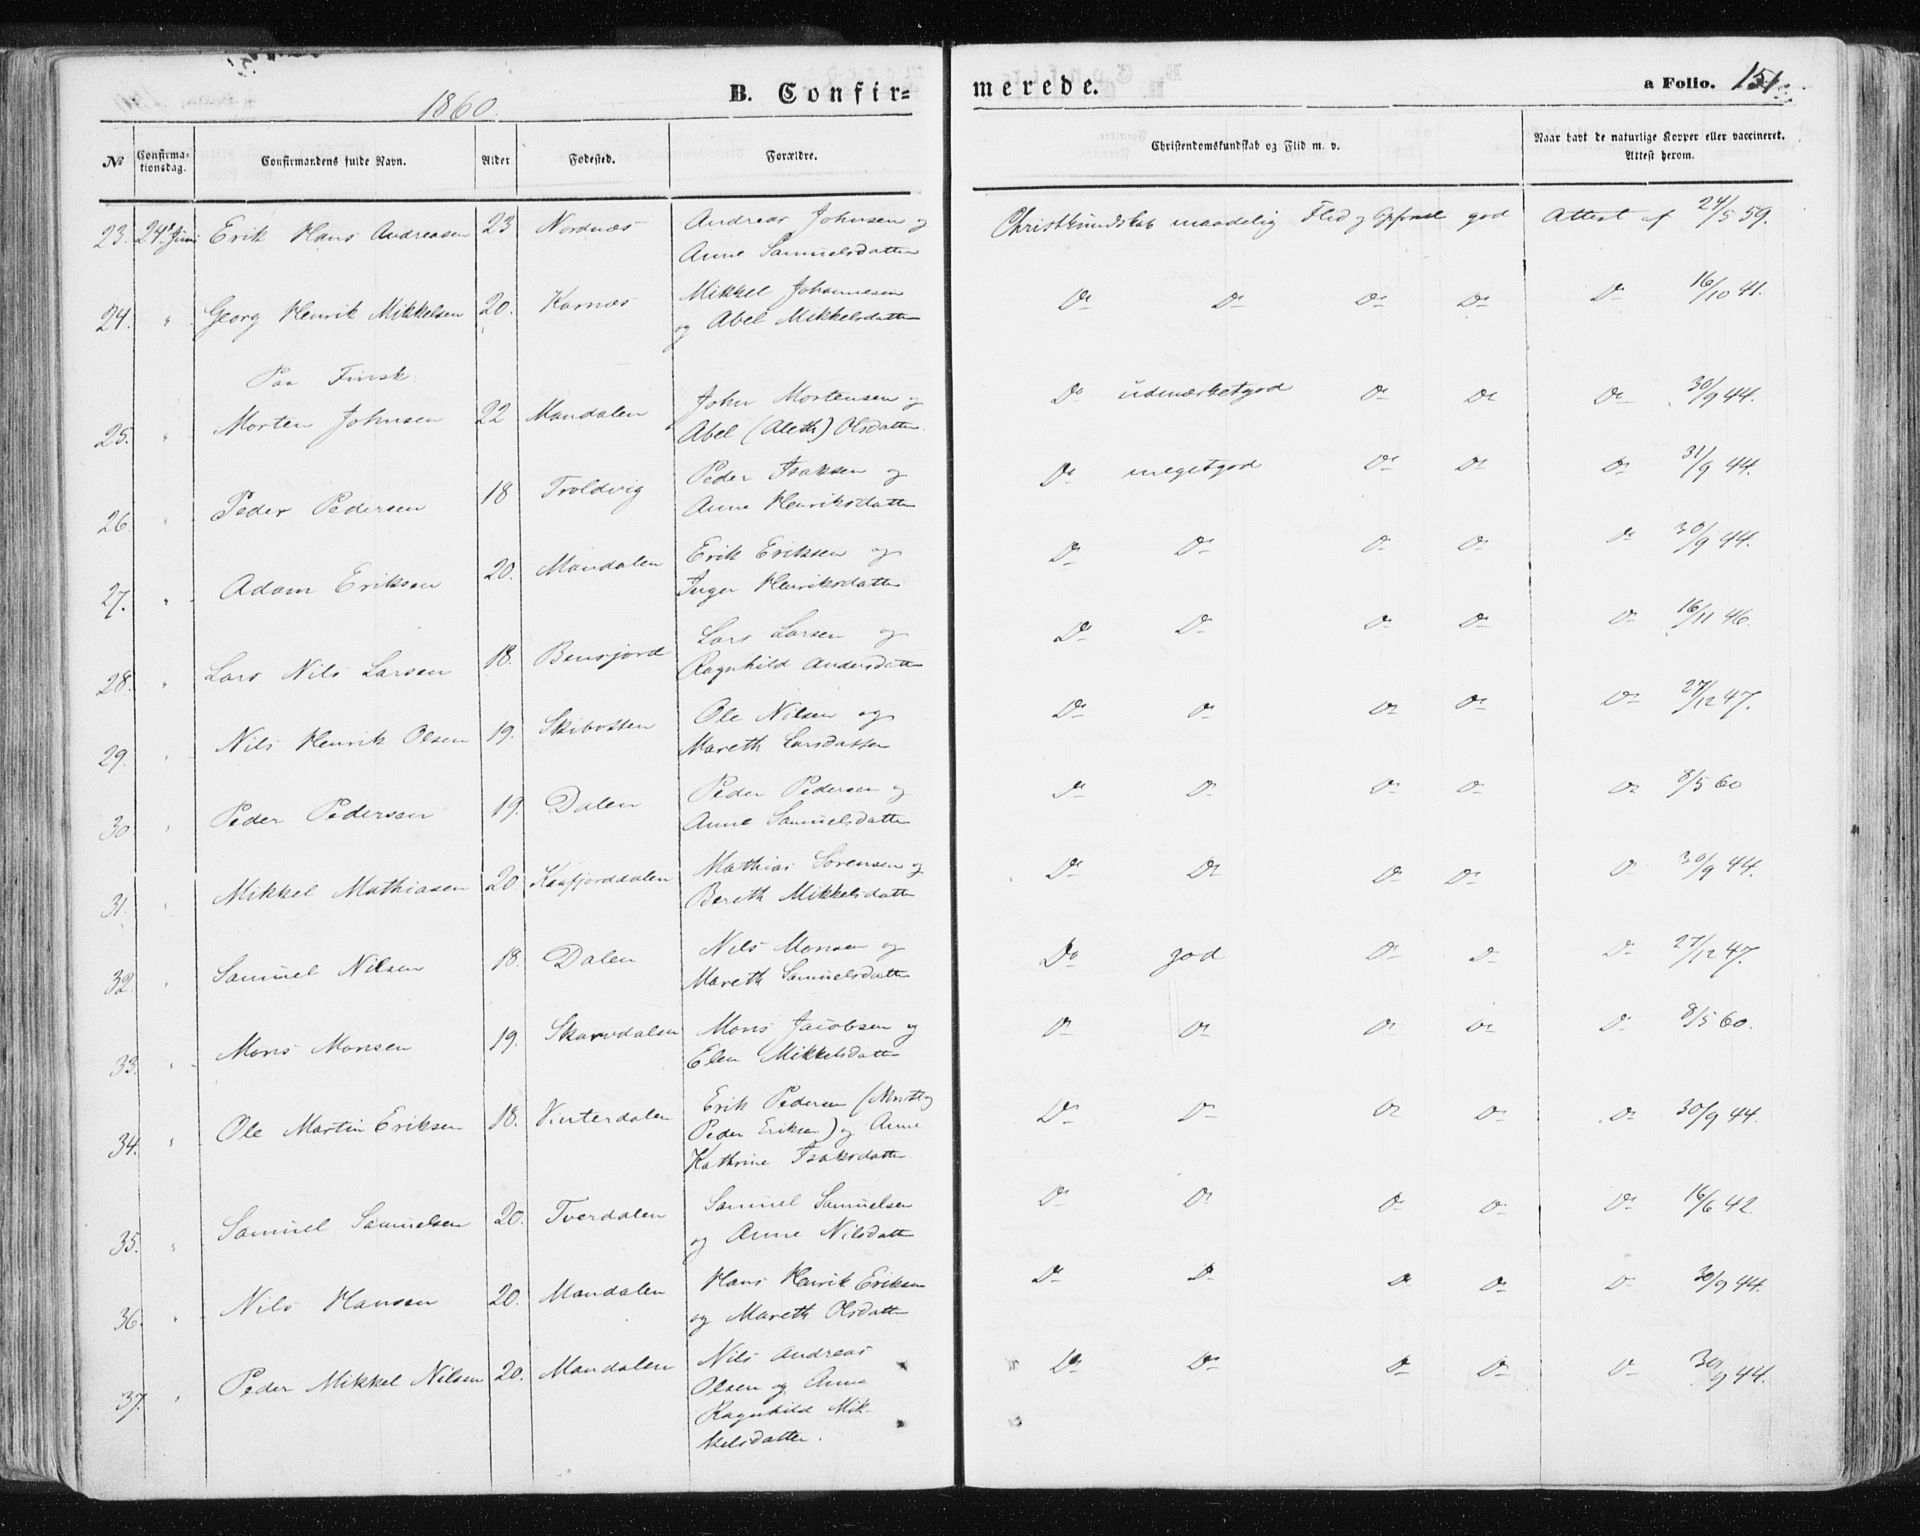 1860.
B. Confirmerede.
a Folio. 151.
№ Confirmationsdag. Confirmandens fulde Navn. Alder Fødested. Forældre. Christendomskundskab og Flid m. v. Naar havt de naturlige Kopper eller vaccineret. Attest herom.
23. 24de Juni Erik Hans Andreasen 23 Nordnæs Andreas Johnsen og Christkundskab maadelig Flid og god Attest af 24/5 59.
Anne Samuelsdatter
24. " Georg Henrik Mikkelsen 20. Karnæs Mikkel Johannesen Do Do Do Do Do 16/10 41.
og Abel Mikkelsdatter
Paa Finsk
25. " Morten Johnsen 22 Mandalen John Mortensen og Do udmærketgod Do Do Do 30/9 44.
Abel (Aleth) Olsdatter.
26. " Peder Pedersen 18 Troldvig Peder Isaksen og Do megetgod Do Do Do 31/9 44.
Anne Henriksdatter
27. " Adam Eriksen 20. Mandalen Erik Eriksen og Do Do Do Do Do 30/9 44.
Inger Henriksdatter
28. " Lars Nils Larsen 18. Bensjord Lars Larsen og Do Do Do Do Do 16/11 46.
Ragnhild Andersdatter
29. " Nils Henrik Olsen 19. Skibotten Ole Nilsen og Do Do Do Do Do 27/12 47.
Mareth Larsdatter
30 " Peder Pedersen 19. Dalen Peder Pedersen og Do Do Do Do Do 8/5 60
Anne Samuelsdatter
31. " Mikkel Mathiasen 20. Kaafjorddalen Mathias Sørensen og Do Do Do Do Do 30/9 44.
Bereth Mikkelsdatter
32. " Samuel Nilsen 18. Dalen Nils Monsen og Do god Do Do Do 27/12 47.
Mareth Samuelsdatter
33. " Mons Monsen 19. Skarvdalen Mons Jacobsen og Do Do Do Do Do 8/5 60.
Elen Mikkelsdatter
34. " Ole Martin Eriksen 18. Vinterdalen Erik Pedersen ( Do Do Do Do Do 30/9 44.
Peder Eriksen) og Anne
Kathrine Isaksdatter
35. " Samuel Samuelsen 20. Tverdalen Samuel Samuelsen Do Do Do Do Do 16/6 42.
og Anne Nilsdatter
36. " Nils Hansen 20. Mandalen Hans Henrik Eriksen Do Do Do Do Do 30/9 44.
og Mareth Olsdatter
37. " Peder Mikkel Nilsen 20. Mandalen Nils Andreas Do Do Do Do Do 30/9 44.
Olsen og Anne
Ragnhild Mik-
kelsdatter.